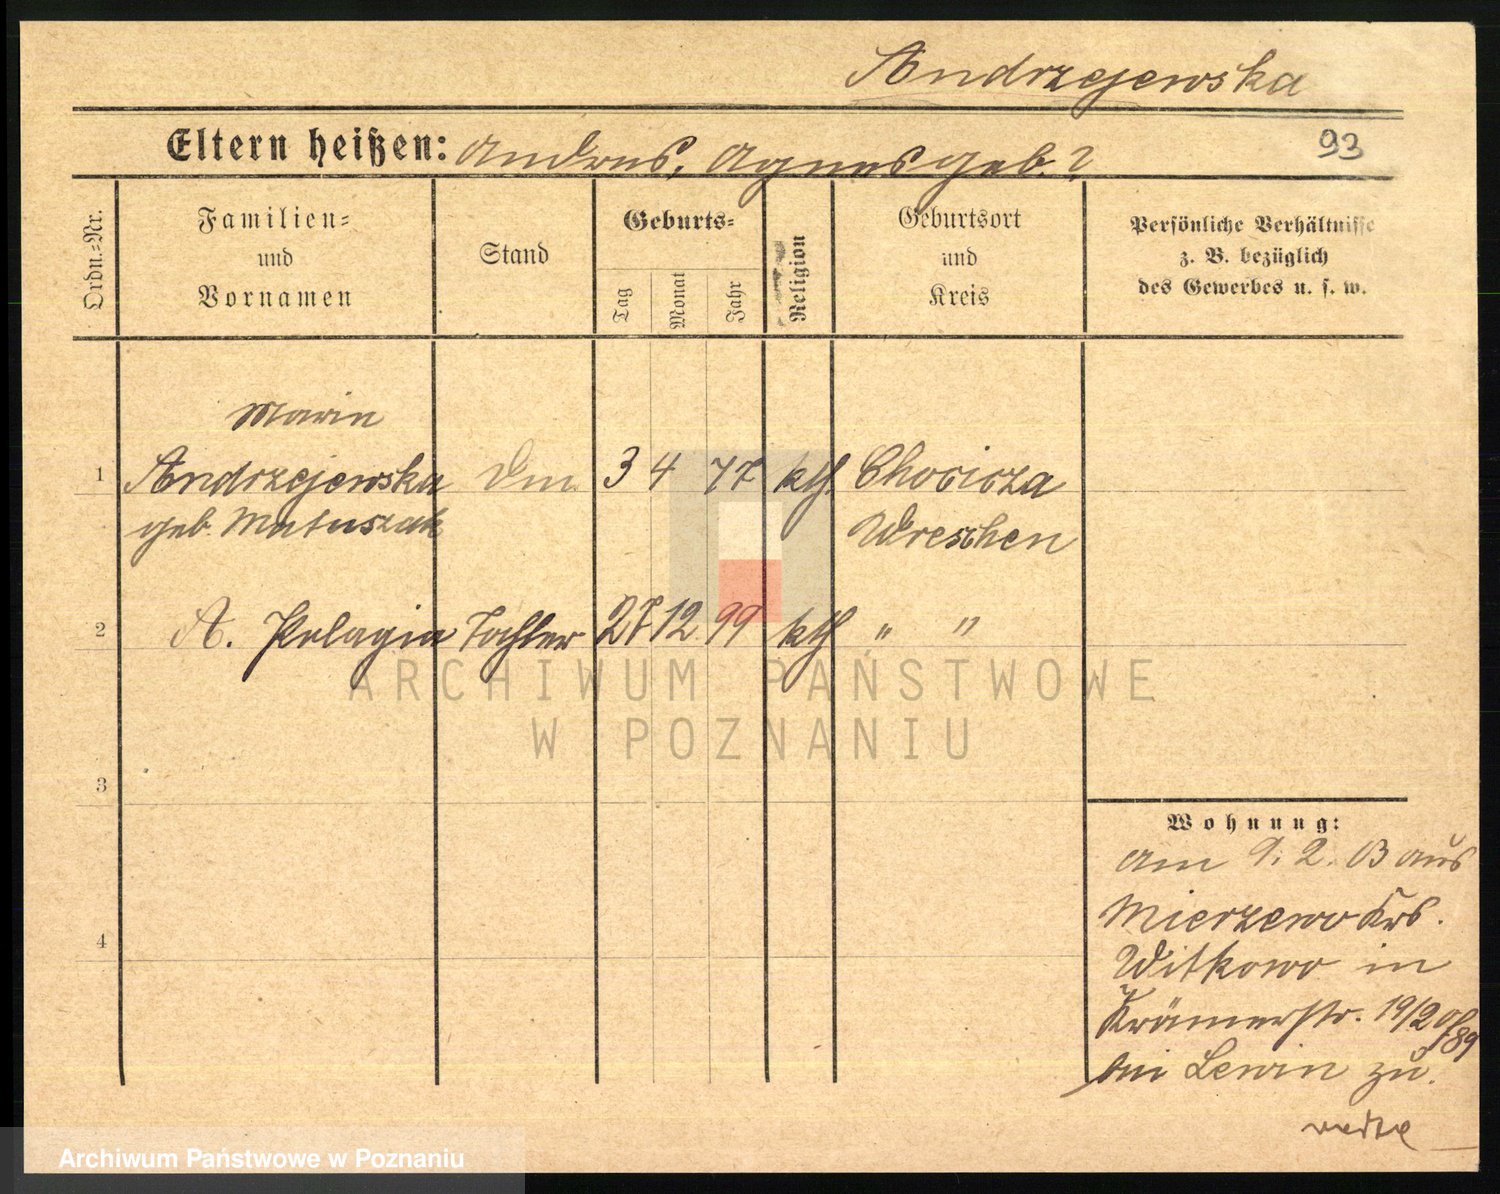 Andrzejewska
Eltern heißen: Andreas, Agnes geb. ?
93
Ordn.-Nr.
Familien- und Vornamen
Stand
Geburts-
Tag
Monat
Jahr
Religion
Geburtsort und Kreis
Persönliche Verhältnisse z. B. bezüglich des Gewerbes u. s. w.
Marie
1 Andrzejewska 3 4 77 kth. Chocicza
geb. Matuszak Wreschen
2 A. Pelagia Tochter 27 12 99 kth " "
3
4
Wohnung:
am 9. 2. 03 aus
Mierzewo Krs.
Witkowo in
Krämerstr. 19/20
bei Lewin zu.
ARCHIWUM PAŃSTWOWE
W POZNANIU
Archiwum Państwowe w Poznaniu